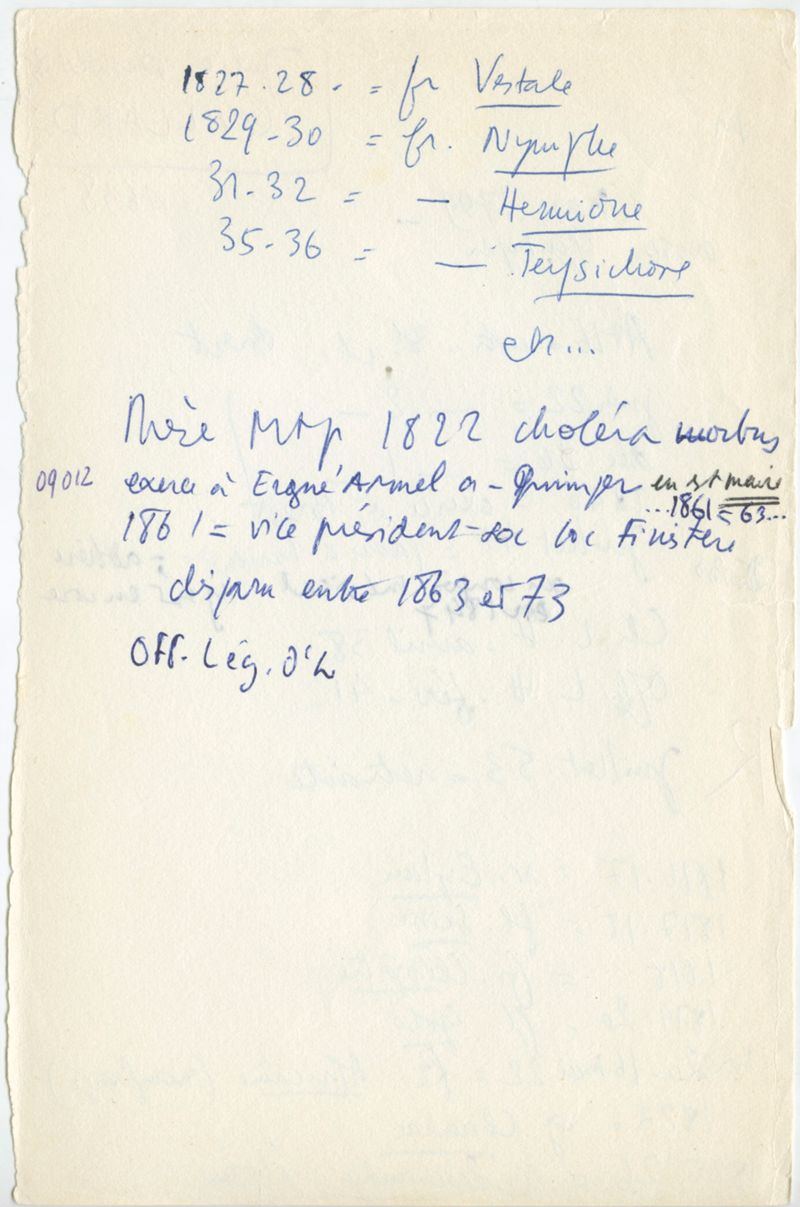 1827.28. = fr Vestale
1829-30 = fr. Nymphe
31-32 = — Hermione
35-36 = — Terpsichore
etc...
Thèse Mtp 1822 choléra morbus
09012 exerce à Ergué Armel a - Quimper en st maire
...1861 = 63...
1861 = vice président soc loc Finistère
disparu entre 1863 et 73
Off. Lég. d'h